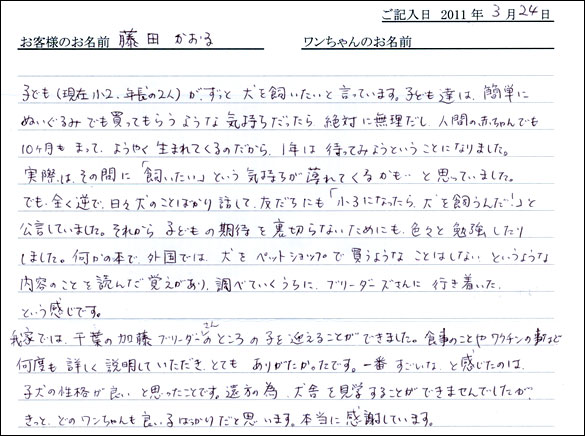 ご記入日 2011年 3月 24日
お客様のお名前 藤田 かおる ワンちゃんのお名前
子ども(現在小2、年長の2人)が、ずっと犬を飼いたいと言っています。子ども達は、簡単に
ぬいぐるみでも買ってもらうような気持ちだったら絶対に無理だし、人間の赤ちゃんでも
10ヶ月もまって、ようやく生まれてくるのだから、1年は待ってみようということになりました。
実際は、その間に「飼いたい」という気持ちが薄れてくるかも‥と思っていました。
でも、全く逆で、日々犬のことばかり話して、友だちにも「小3になったら、犬を飼うんだ!」と
公言していました。それから子どもの期待を裏切らないためにも、色々と勉強したり
しました。何かの本で、外国では、犬をペットショップで買うようなことはしないというような
内容のことを読んだ覚えがあり、調べていくうちに、ブリーダーズさんに行き着いた、
という感じです。
我家では、千葉の加藤ブリーダーさんのところの子を迎えることができました。食事のことやワクチンの事など
何度も詳しく説明していただき、とてもありがたかったです。一番すごいな、と感じたのは、
子犬の性格が良いと思ったことです。遠方の為、犬舎を見学することができませんでしたが、
きっと、どのワンちゃんも良い子ばかりだと思います。本当に感謝しています。